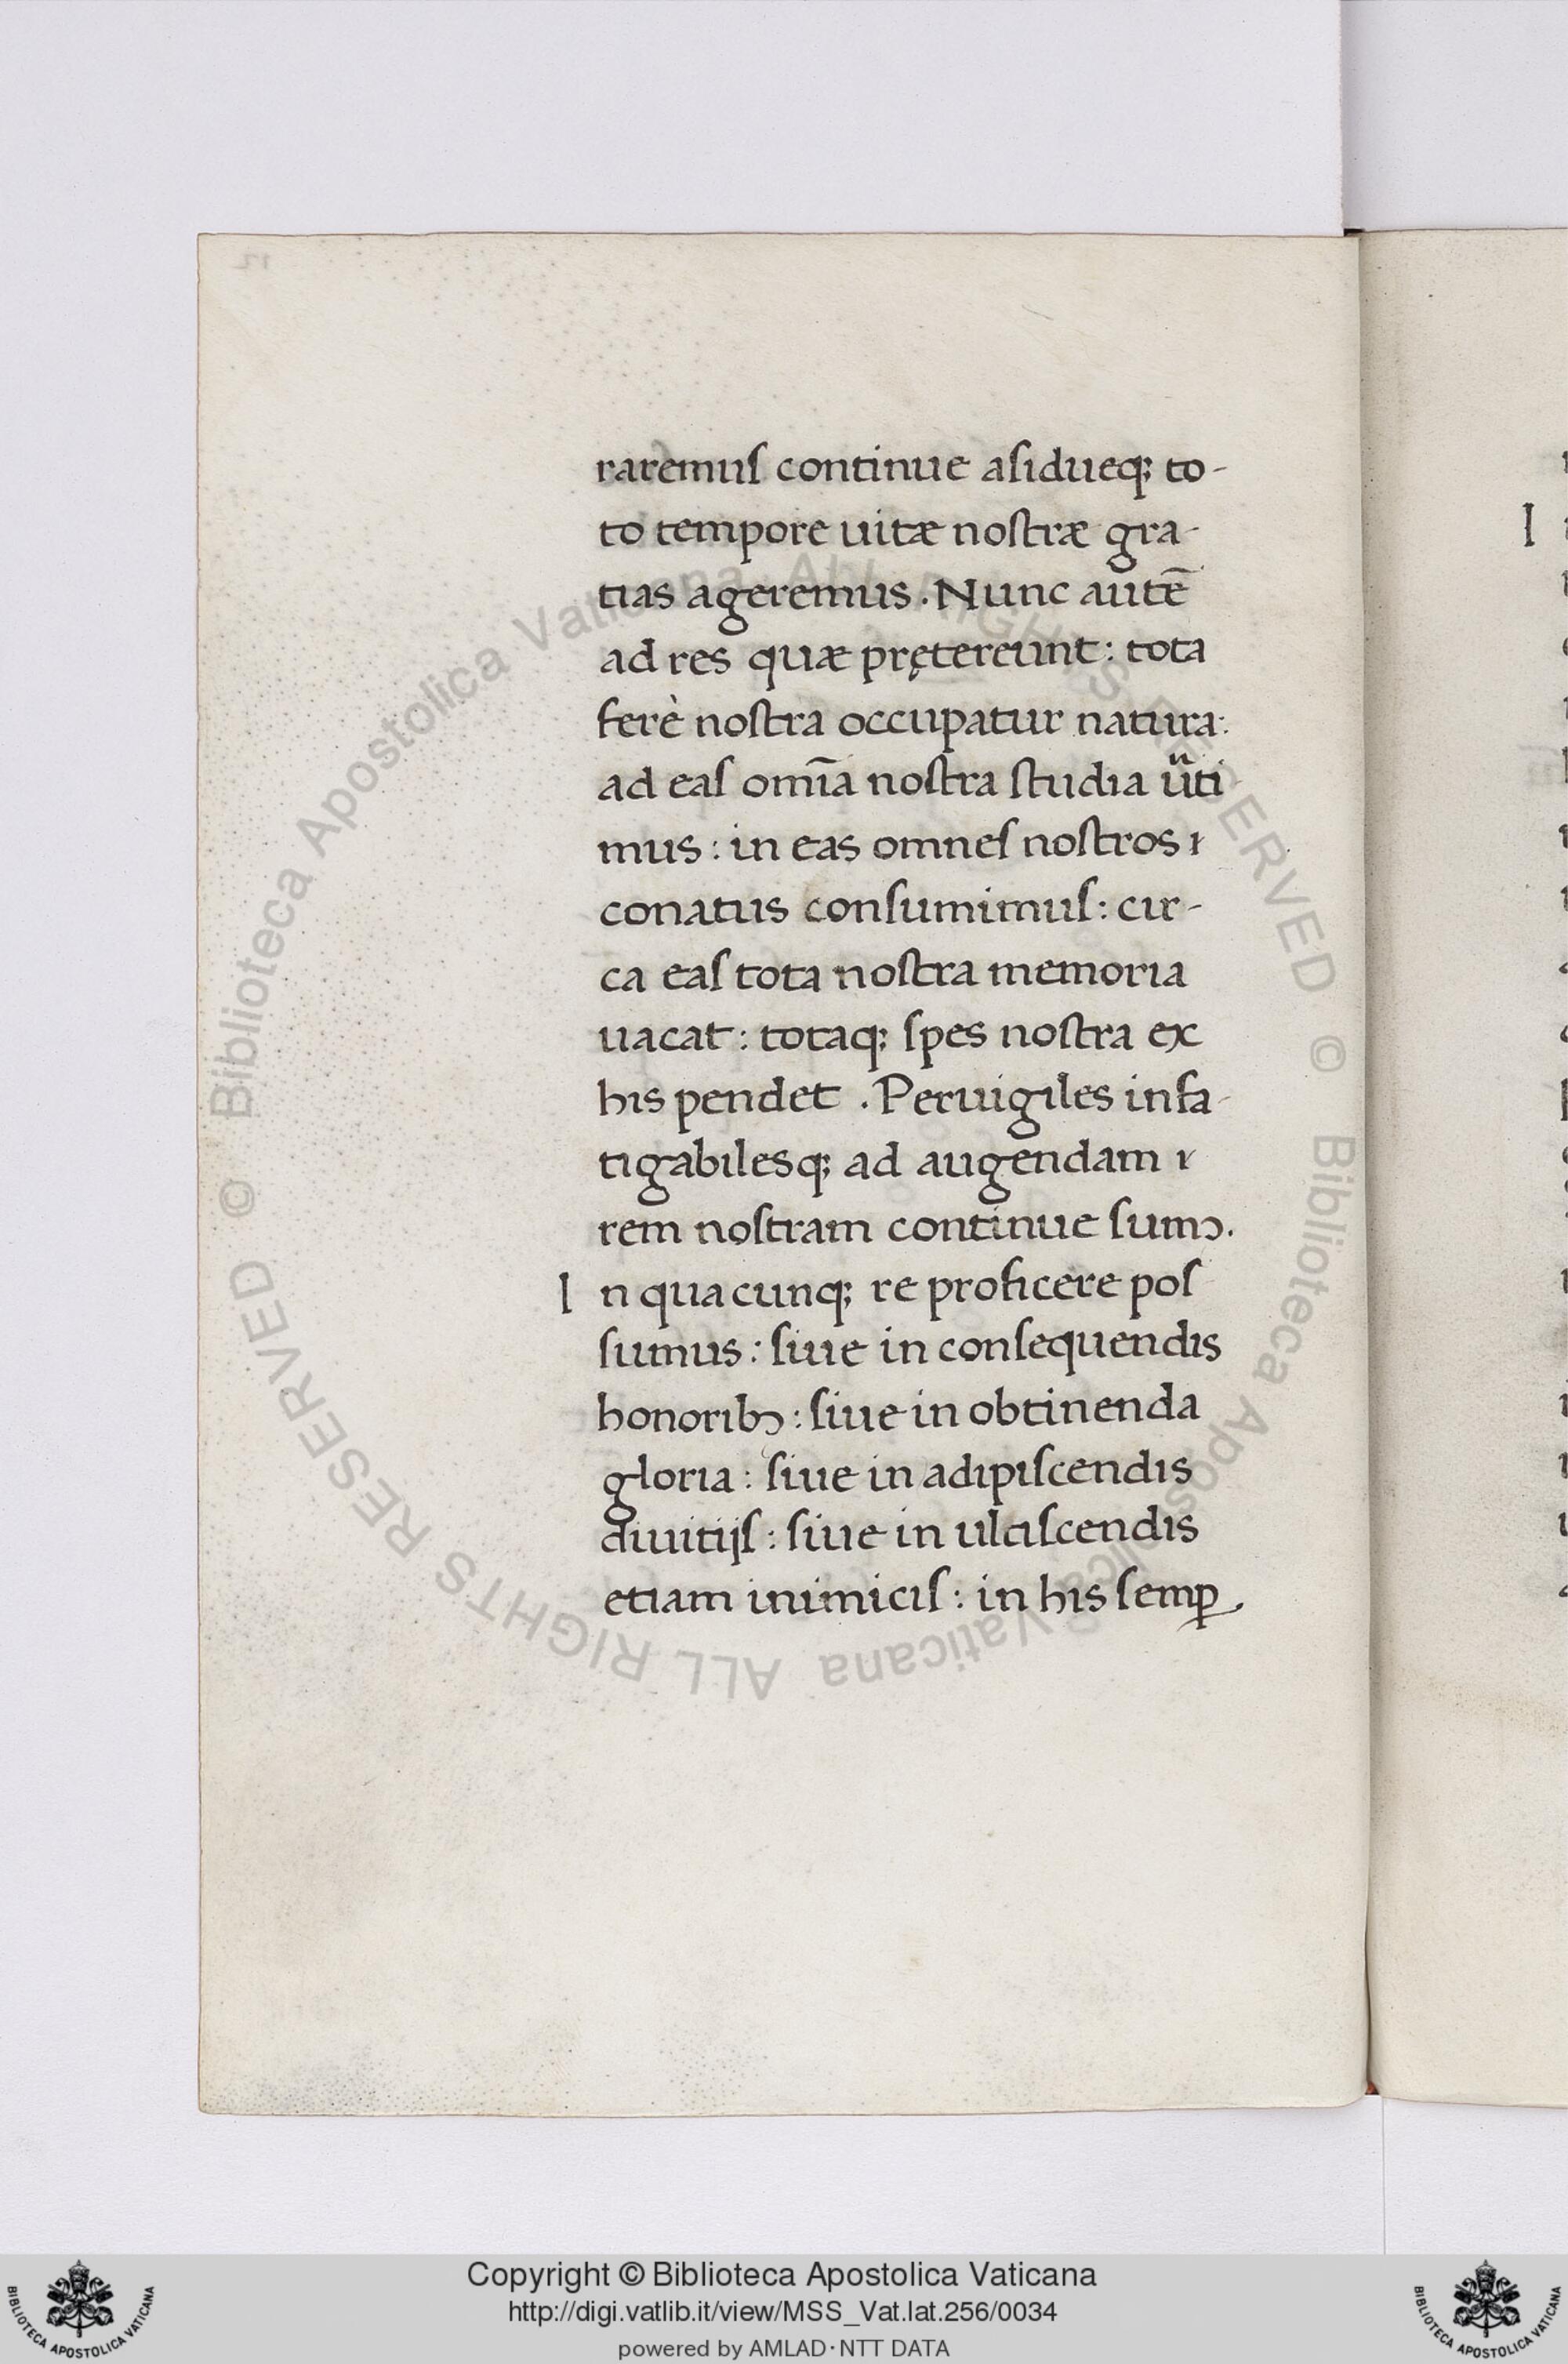 raremuſ continue aſidueq; to-
to tempore uitæ noſtræ gra-
tias ageremus. Nunc autē
ad res quæ prętereunt: tota
ferè noſtra occupatur natura:
ad eaſ om̄ia noſtra ſtudia űti
mus: in eas omneſ noſtros
conatus conſumimuſ: cir-
ca eaſ tota noſtra memoria
uacat: totaq; ſpes noſtra ex
his pendet. Peruigiles infa-
tigabilesq; ad augendam
rem noſtram continue ſumꝰ.
In quacunq; re proficere poſ
ſumus: ſiue in conſequendis
honoribꝰ: ſiue in obtinenda
gloria: ſiue in adipiſcendis
diuitijſ: ſiue in ulciſcendis
etiam inimiciſ: in his ſemꝑ
© Biblioteca Apostolica Vaticana ALL RIGHTS RESERVED © Biblioteca Apostolica Vaticana ALL RIGHTS RESERVED
Copyright © Biblioteca Apostolica Vaticana
http://digi.vatlib.it/view/MSS_Vat.lat.256/0034
powered by AMLAD·NTT DATA
BIBLIOTECA APOSTOLICA VATICANA
BIBLIOTECA APOSTOLICA VATICANA